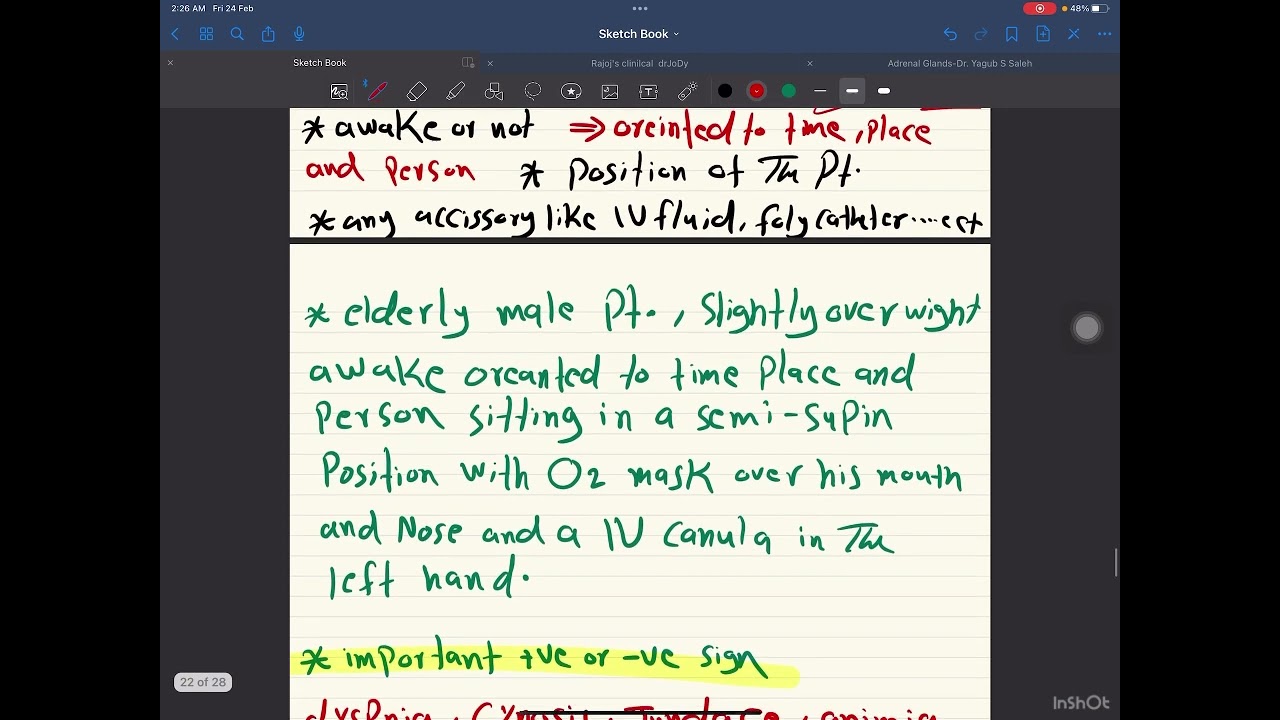 2:26 AM Fri 24 Feb
48%
Sketch Book
Sketch Book
Rajoj's clinilcal drJoDy
Adrenal Glands-Dr. Yagub S Saleh
* awake or not ⇒ oreinted to time, place
and person * position of The Pt.
* any accissory like IV fluid, foly catheter....ect
* elderly male Pt., Slightly over wight
awake oreanted to time place and
person sitting in a semi-supin
position with O2 mask over his mouth
and Nose and a IV canula in The
left hand.
* important +ve or -ve sign
22 of 28
InShOt